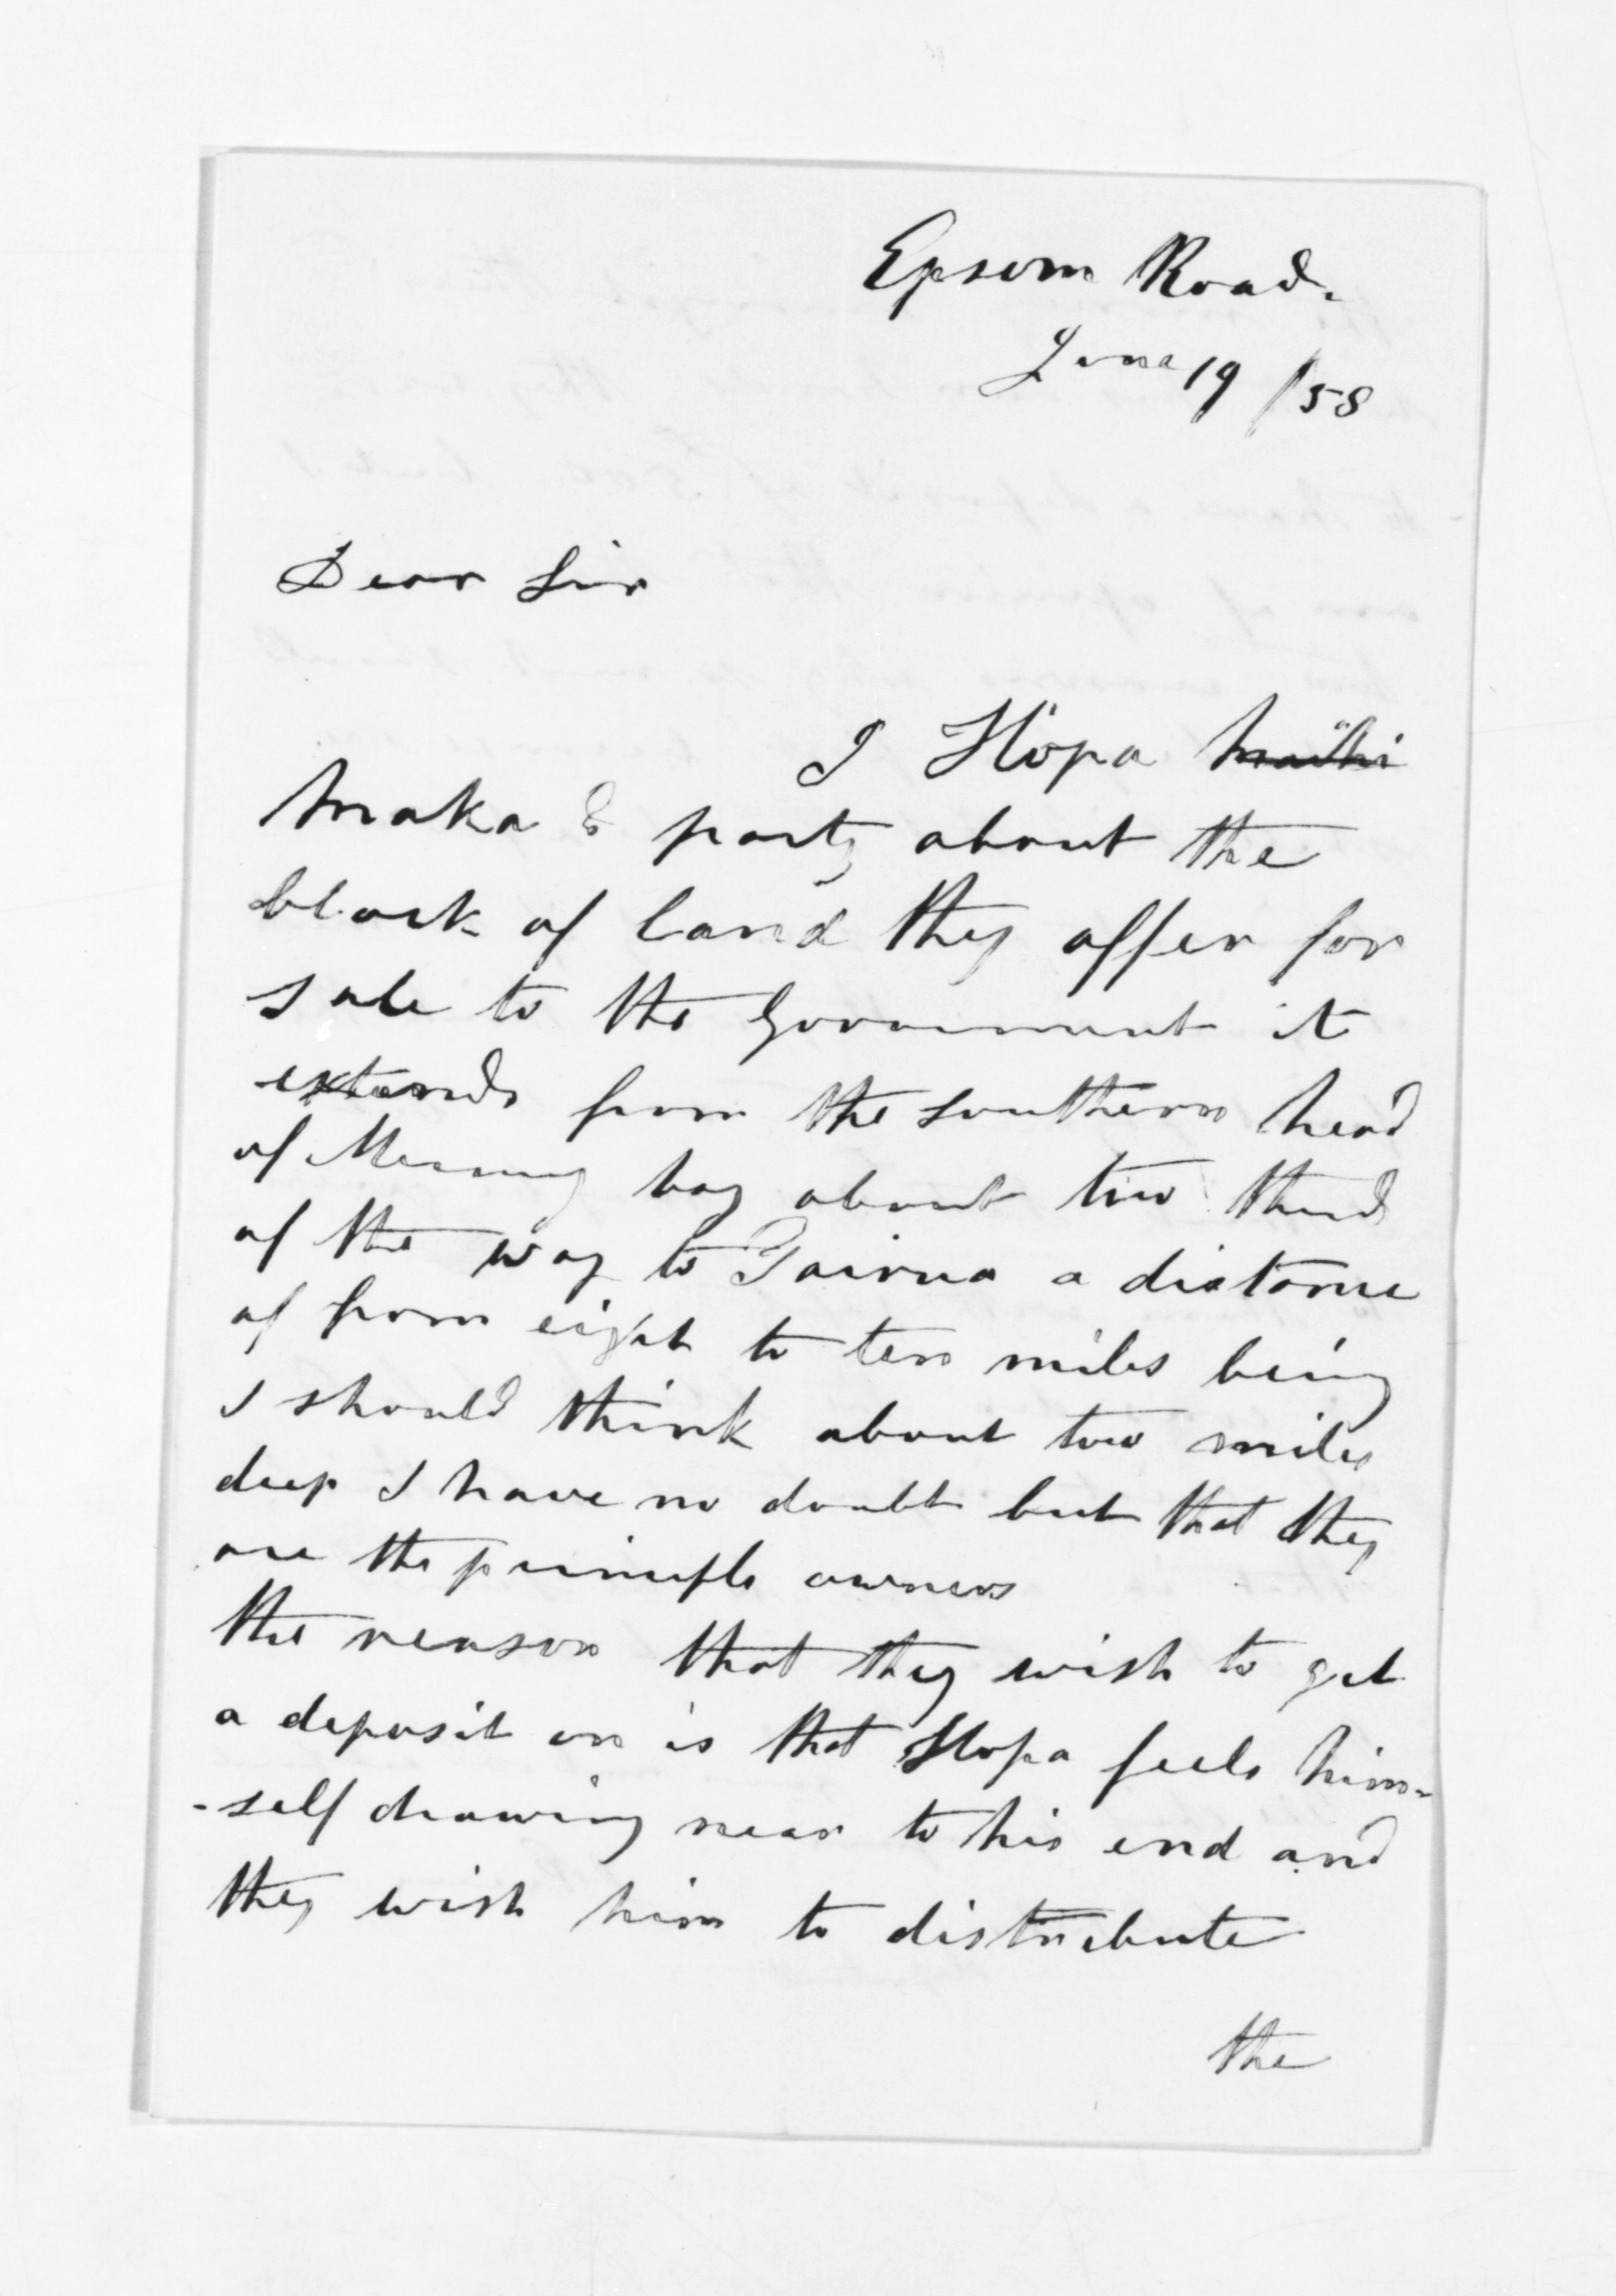 Epsom Road.
June 19 /58
Dear Sir
I Hopa
Maka & party about the
block of land they offer for
sale to the Government it
extends from the southern head
of Mercury bay about two third
of the way to Tairua a distance
of from eight to ten miles being
I should think about two miles
deep I have no doubt but that they
are the principle owners
the reason that they wish to get
a deposit on is that Hopa feels him-
-self drawing near to his end and
they wish him to distribute
the